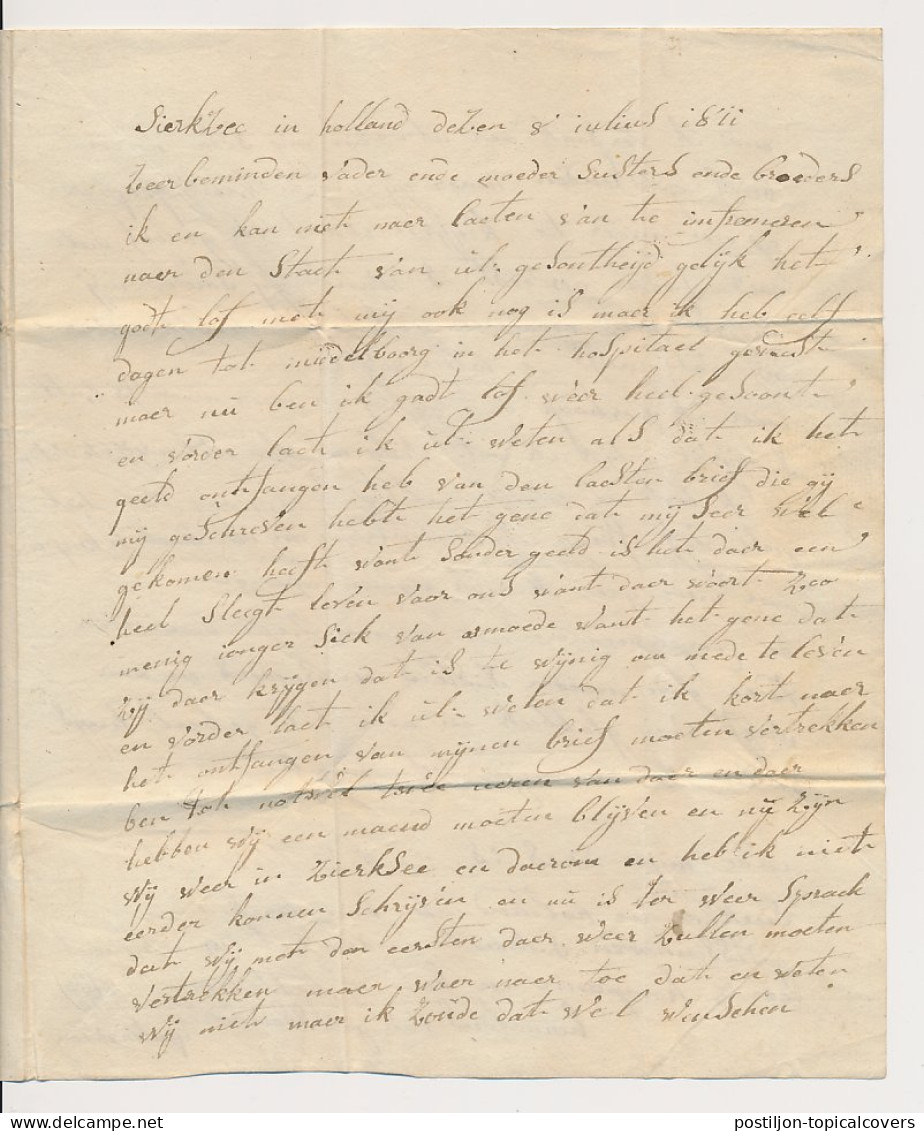 Sierkzee in holland dezen 8 iulius 1811
zeer beminden vader ende moeder susters ende broeders
ik en kan niet naer laeten van te imfromeren
naer den staet van ul- gesontheijd gelijk het
godt lof met mij ook nog is maer ik heb elf
dagen tot middelboorg in het hospitael geweest
maer nu ben ik godt lof weer heel gesoont
en vorder laet ik ul- weten als dat ik het
geeld ontfangen heb van den laesten brief die gij
mij geschreven hebt het gene dat mij seer wel
gekomen heeft want sonder geeld is het daer een
heel slegt leven voor ons want daer woort zoo
menig ionger siek van armoede want het gene dat
zij daer krijgen dat is te wijnig om mede te leven
en vorder laet ik ul- weten dat ik kort naer
het ontfangen van mijnen brief moeten vertrekken
ben tot twee ueren van daer en daer
hebben wij een maend moeten blijven en nu zijn
wij weer in zierksee en daerom en heb ik niet
eerder konnen schrijven en nu is ter weer sprack
dat wij met den eersten daer weer zullen moeten
vertrekken maer waer naer toe dat en weten
wij niet maer ik zoude dat wel wenschen
postiljon-topicalcovers